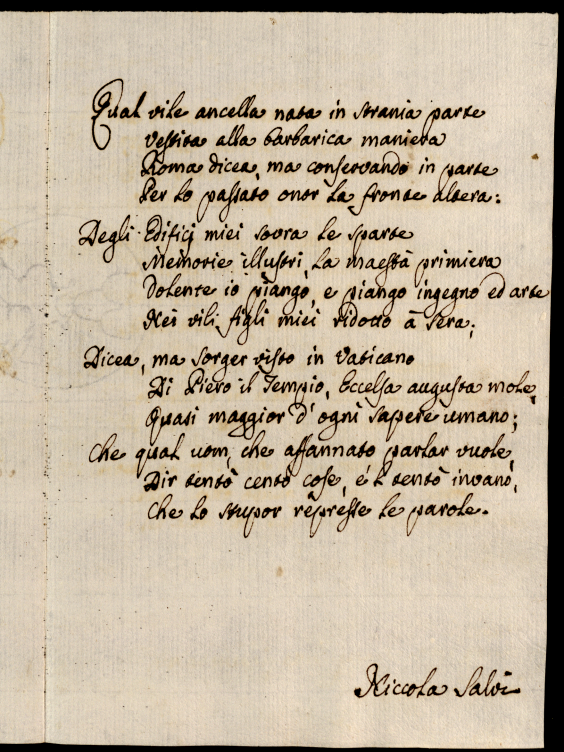 Qual vile ancella nata in strania parte
Vestita alla barbarica maniera
Roma dicea, ma conservando in parte
Per lo passato onor la fronte altera:
Degli Edifici miei sovra le sparte
Memorie illustri, la maestà primiera
Dolente io piango, e piango ingegno ed arte
Nei vili figli miei ridotto à sera;
Dicea, ma sorger visto in Vaticano
Di Piero il Tempio, Eccelsa augusta mole,
Quasi maggior d'ogni sapere umano;
Che qual uom, che affannato parlar vuole,
Dir tentò cento cose, e 'l tentò invano,
Che lo stupor represse le parole.
Niccola Salvi